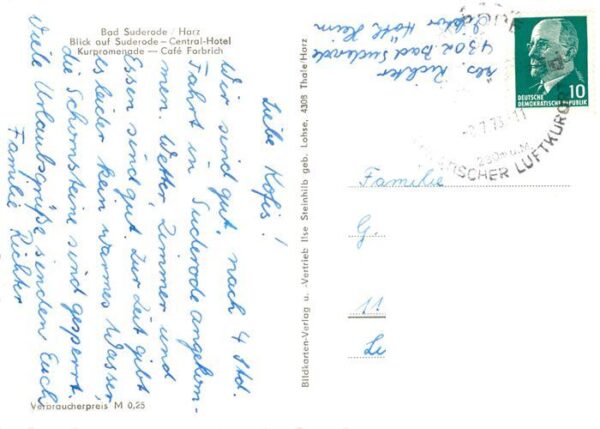 Bad Suderode / Harz
Blick auf Suderode — Central-Hotel
Kurpromenade — Café Farbrich
Liebe Kofis!
Wir sind gut, nach 4 Std.
Fahrt in Suderode angekom-
men. Wetter, Zimmer und
Essen sind gut. Zur Zeit gibt
es leider kein warmes Wasser,
die Schornsteine sind gesperrt.
Viele Urlaubsgrüße senden Euch
Familie Richter
Verbraucherpreis M 0,25
Bildkarten-Verlag u. -Vertrieb Ilse Steinhilb geb. Lohse, 4308 Thale/Harz
Richter
4302 Bad Suderode
10
DEUTSCHE
DEMOKRATISCHE REPUBLIK
7.73-11
ü.M.
LUFTKURORT
Familie
G.
11
Le